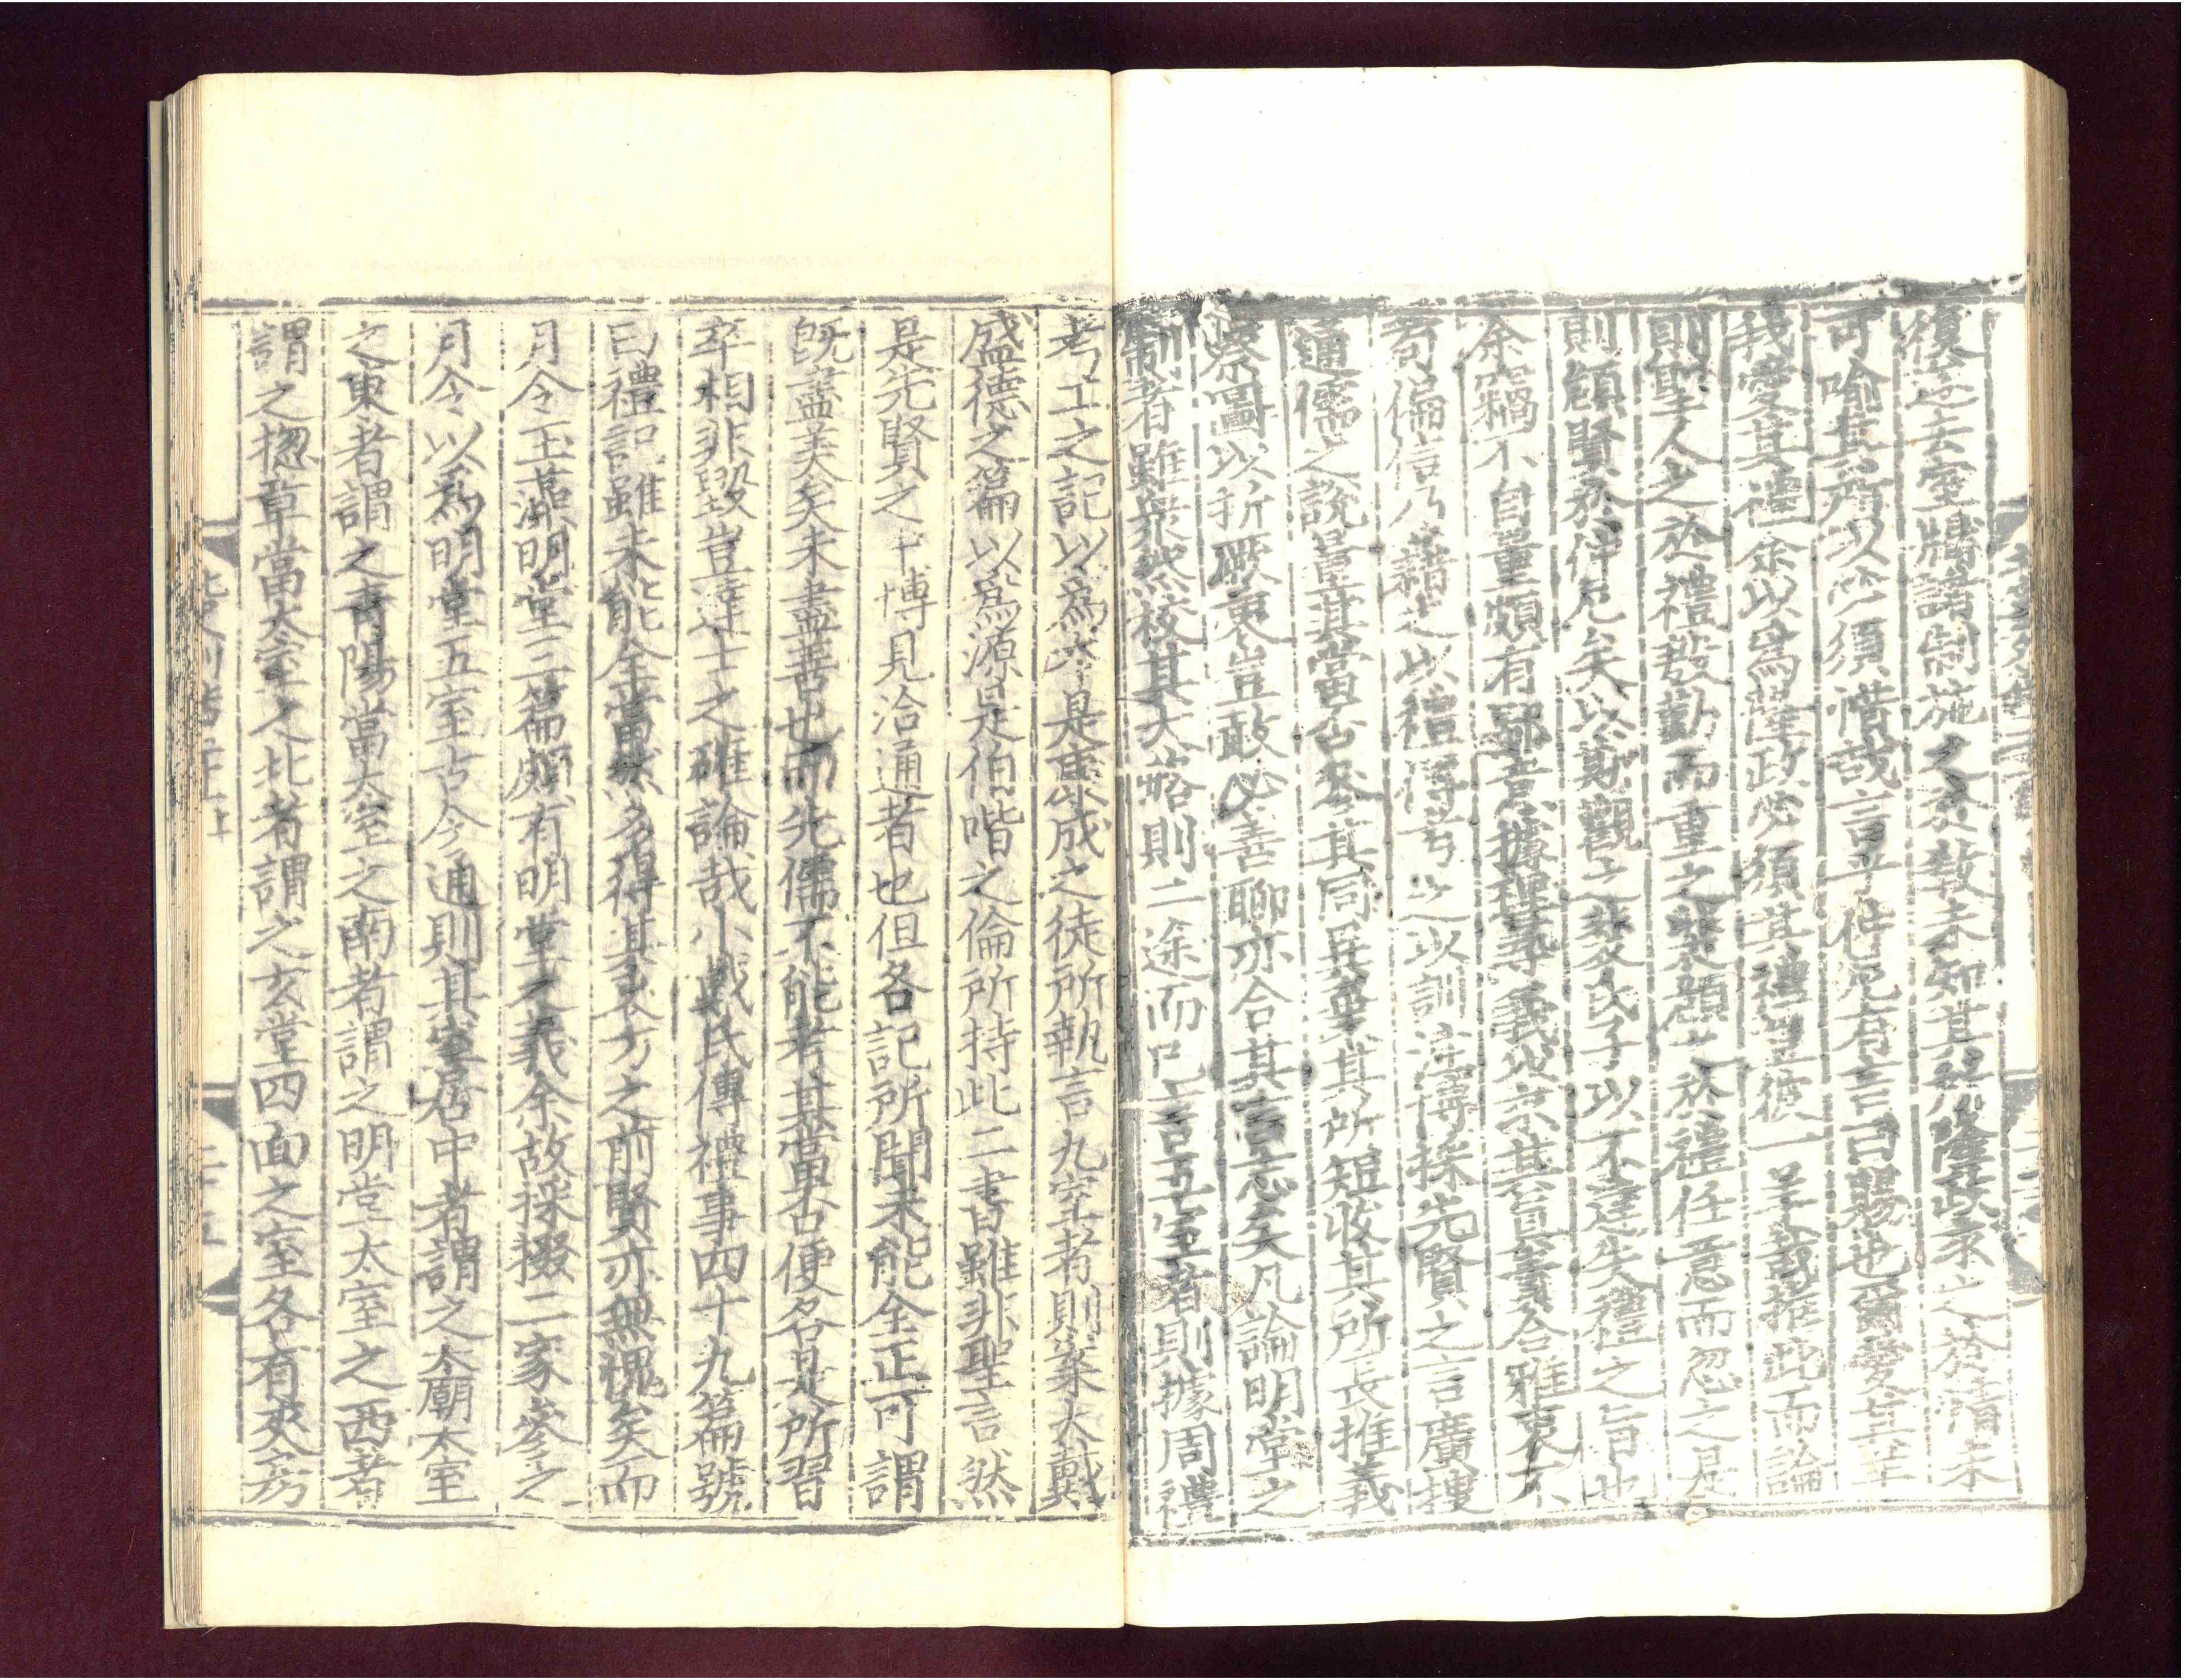 復逆去室牖諸制施之於教未知其所隆政求之於情未
可喻其所以必須惜哉言乎仲尼有言曰賜也爾愛其羊
我愛其禮余以爲隆政必須其禮豈彼一羊哉推此而論
則聖人之於禮殷勤而重之裴頠之於禮任意而忽之是
則頠賢於仲尼矣以斯觀之裴氏子以不達失禮之旨也
余竊不自量頗有鄙意據理尋義以求其旨貴合雅衷不
苟偏信乃藉之以禮傳考之以訓注博採先賢之言廣搜
通儒之說量其當否參其同異棄其所短收其所長推義
察圖以折厥衷豈敢必善聊亦合其言志矣凡論明堂之
制者雖衆然校其大略則二途而已言五室者則據周禮
考工之記以爲本是康成之徒所執言九室者則案大戴
盛德之篇以爲源是伯喈之倫所持此二書雖非聖言然
是先賢之中博見洽通者也但各記所聞未能全正可謂
既盡美矣未盡善也而先儒不能考其當否便各是所習
卒相非毀豈達士之確論哉小戴氏傳禮事四十九篇號
曰禮記雖未能全當然多得其衷方之前賢亦無愧矣而
月令玉藻明堂三篇頗有明堂之義余故採掇二家參之
月令以爲明堂五室古今通則其室居中者謂之太廟太室
之東者謂之青陽當太室之南者謂之明堂太室之西者
謂之揔章當太室之北者謂之玄堂四面之室各有夾房